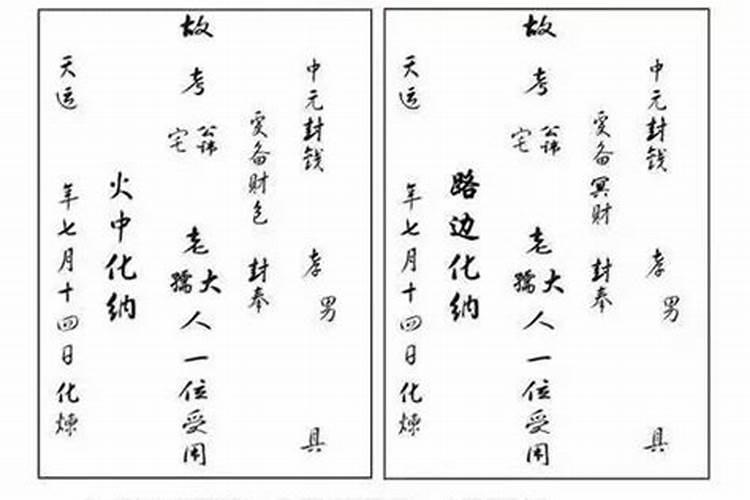 中元封钱 孝男 具
爰备财包 封奉
故考 公讳 宅 老 大孺人一位受用
火中化纳
天运 年七月十四日化炼
中元封钱 孝男 具
爰备冥财 封奉
故考 公讳 宅 老 大孺人一位受用
路边化纳
天运 年七月十四日化炼